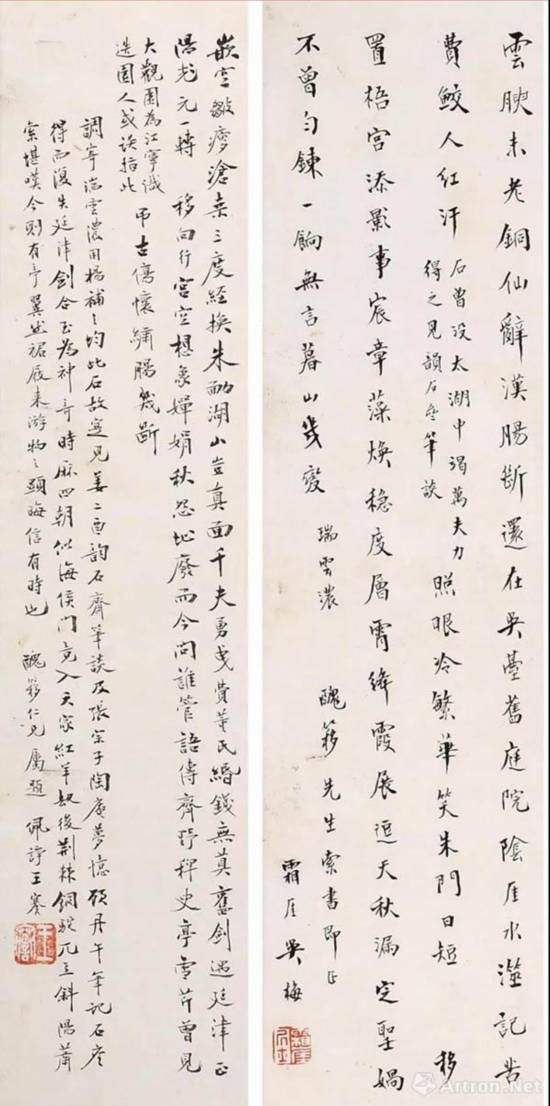 雲腴未老銅仙辭漢腸斷還在吳臺舊庭院陰厓水記
費鮫人紅汗
石曾没太湖中濁萬夫力
得之見韻石齋筆談
照眼冷繁華笑朱門日短 移
置梧宮添影事宸章藻煥穩度層霄絳霞展逗天秋漏定聖媧
不曾勻鍊一餉無言暮山幾變 瑞雲濃 醜簃先生索書即正
霜厓吳梅
嵌空皺瘠滄桑三度經換朱勔湖山豈真面千夫勇曳費董氏緡錢無算舊劍遇延津正
陽元一轉 移向行宮空想象嬋娟秋怨地廢而今問誰管語傳齊野稗史亭雪芹曾見
大觀園為江寧織
造園人或誤指此
弔古傷懷繡腸幾斷
調寄瑞雲濃用楊補之均此石故寔見姜二酉韻石齋筆談及張宗子陶庵夢憶顧丹午筆記石
得而復失延津劍合至為神奇時四朝似海侯門竟入天家紅羊劫後荊棘銅駝兀立斜陽蕭
索堪嘆今則有亭翼然裙屐來游物之顯晦信有時也 醜簃仁兄屬題 佩諍王謇
Artron.Net